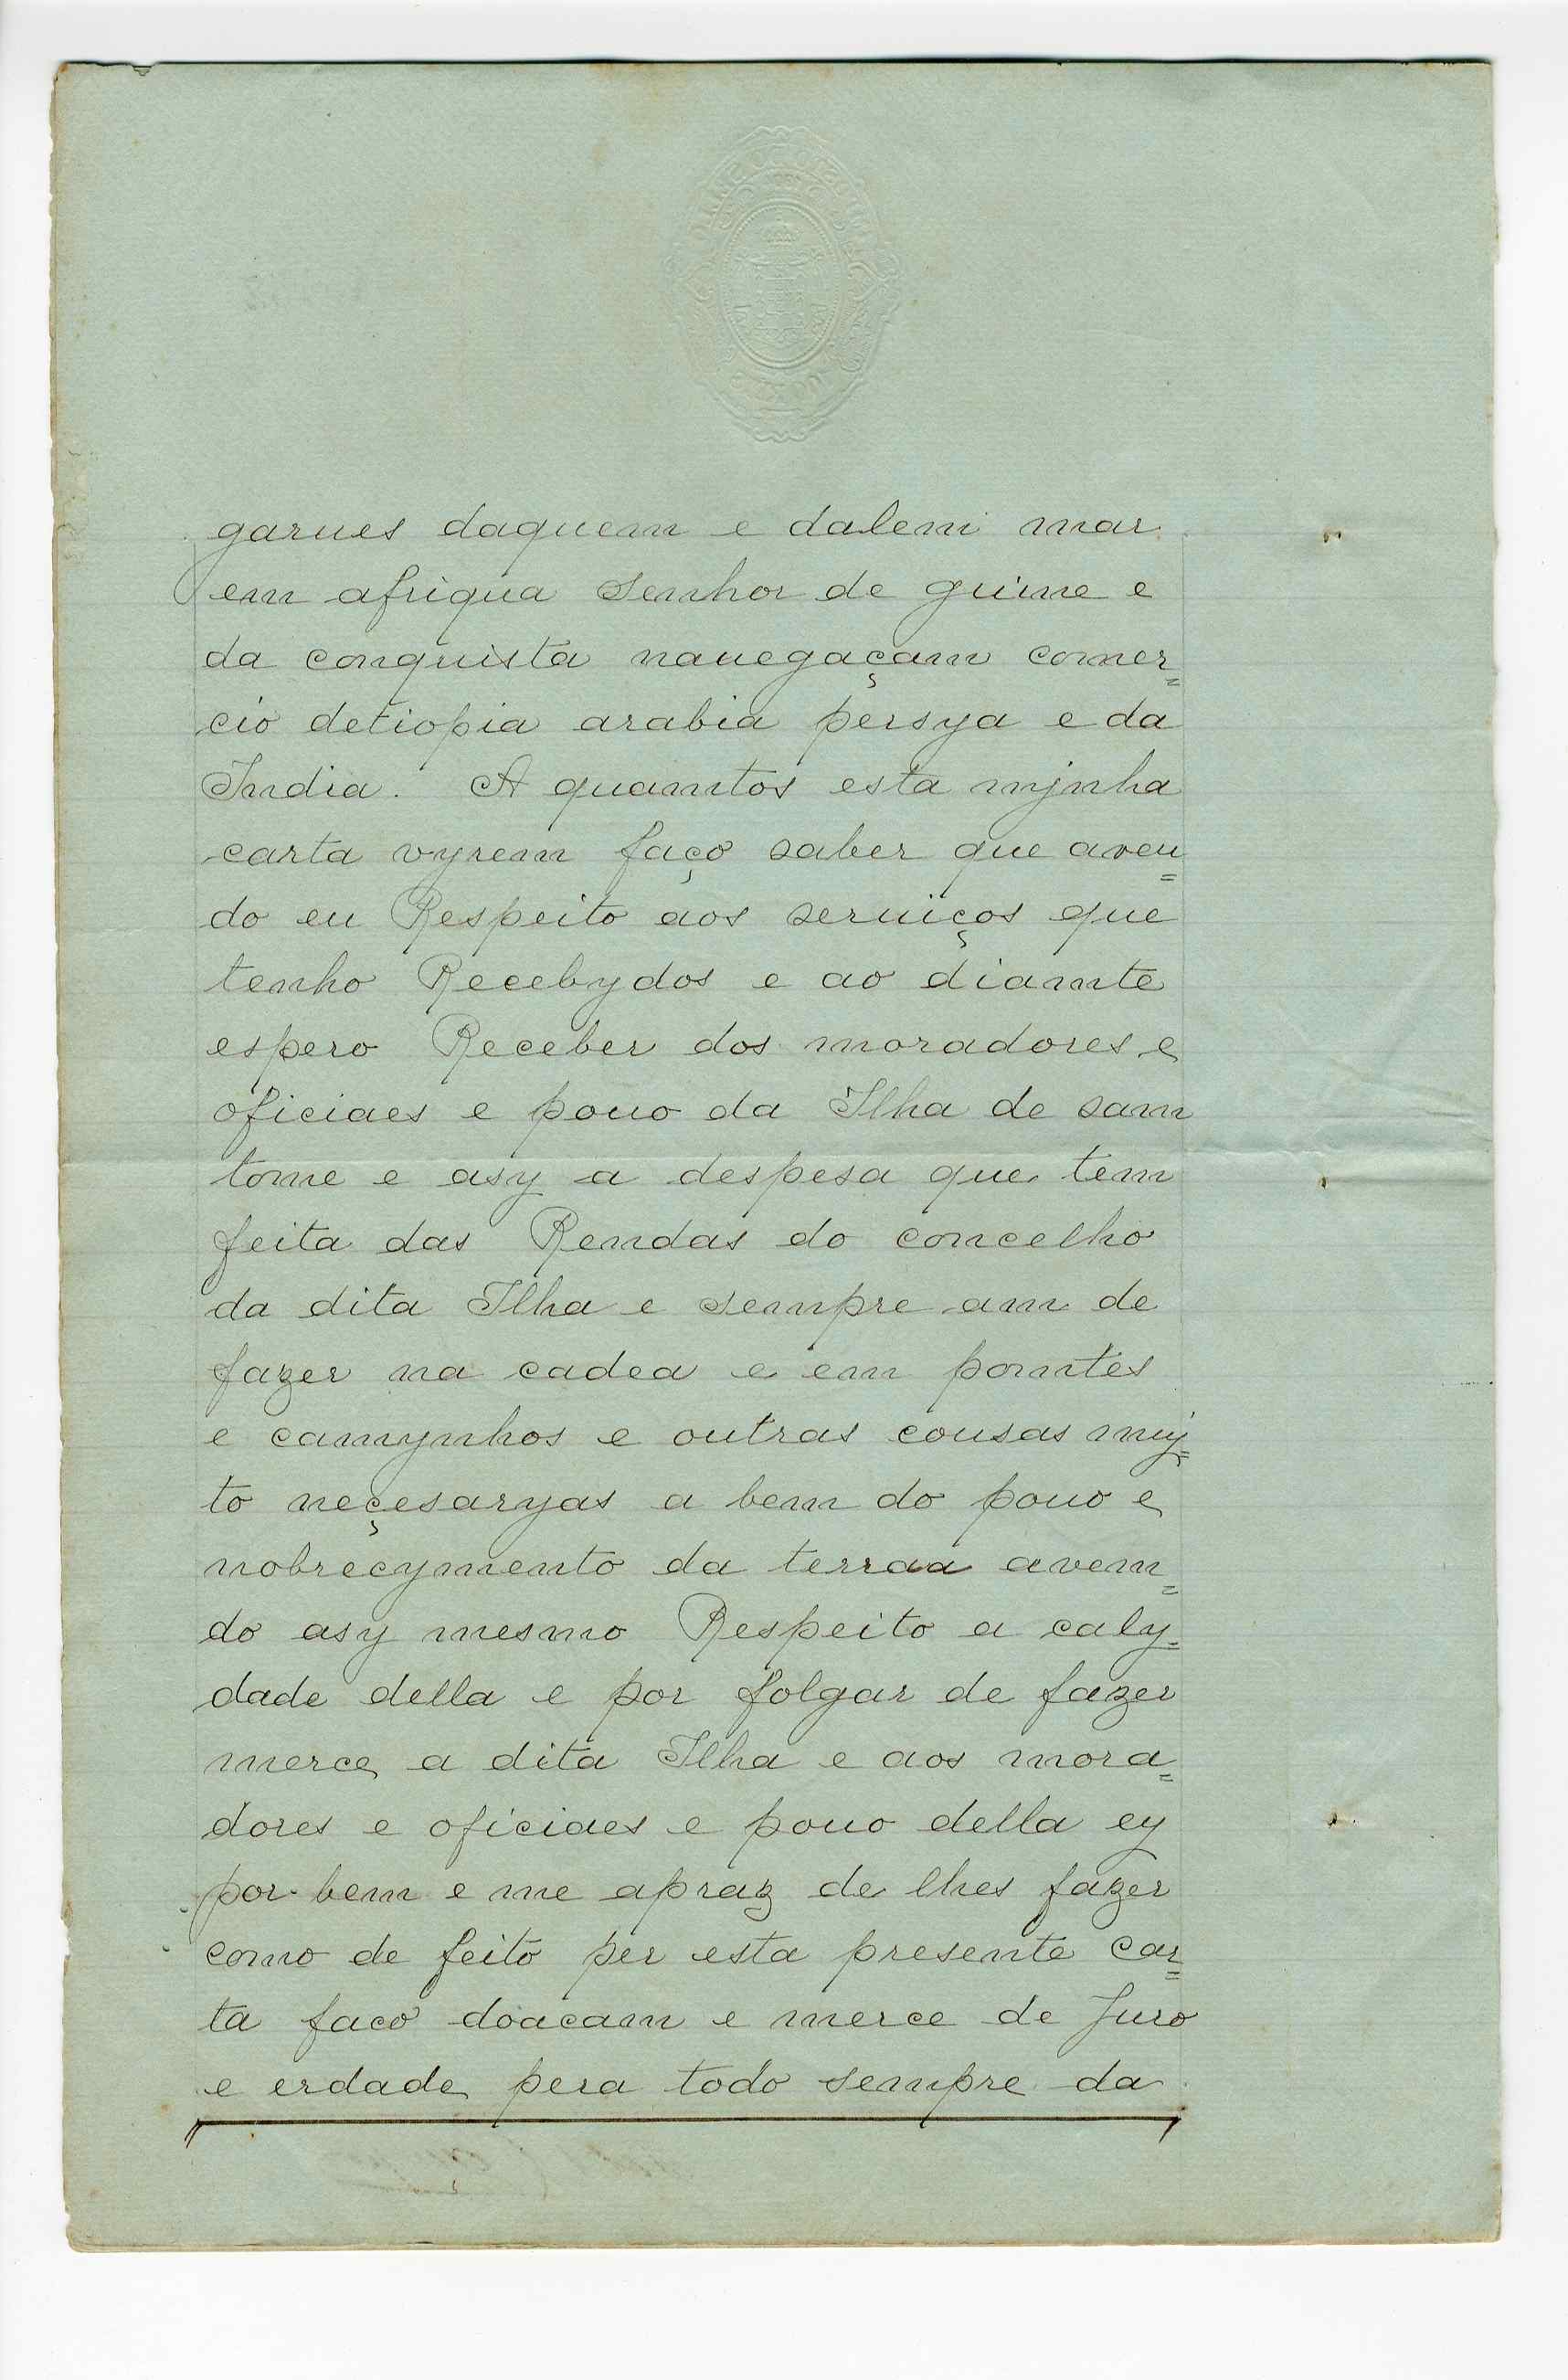 garues daquem e dalem mar
em afriqua Senhor de guine e
da conquista nauegaçam comer=
cio detiopia arabia persya e da
India. A quamtos esta mjnha
carta vyrem faço saber que aven=
do eu Respeito aos seruiços que
tenho Recebydos e ao diamte
espero Receber dos moradores e
oficiaes e pouo da Ilha de sam
tome e asy a despesa que tem
feita das Rendas do concelho
da dita Ilha e sempre am de
fazer na cadea e em pomtes
e camynhos e outras cousas muj=
to neçesaryas a bem do pouo e
nobrecymento da terraa avem=
do asy mesmo Respeito a caly=
dade della e por folgar de fazer
merce a dita Ilha e aos mora=
dores e oficiaes e pouo della ey
por bem e me apraz de lhes fazer
como de feito per esta presente car=
ta faco doacam e merce de Juro
e erdade pera todo sempre da